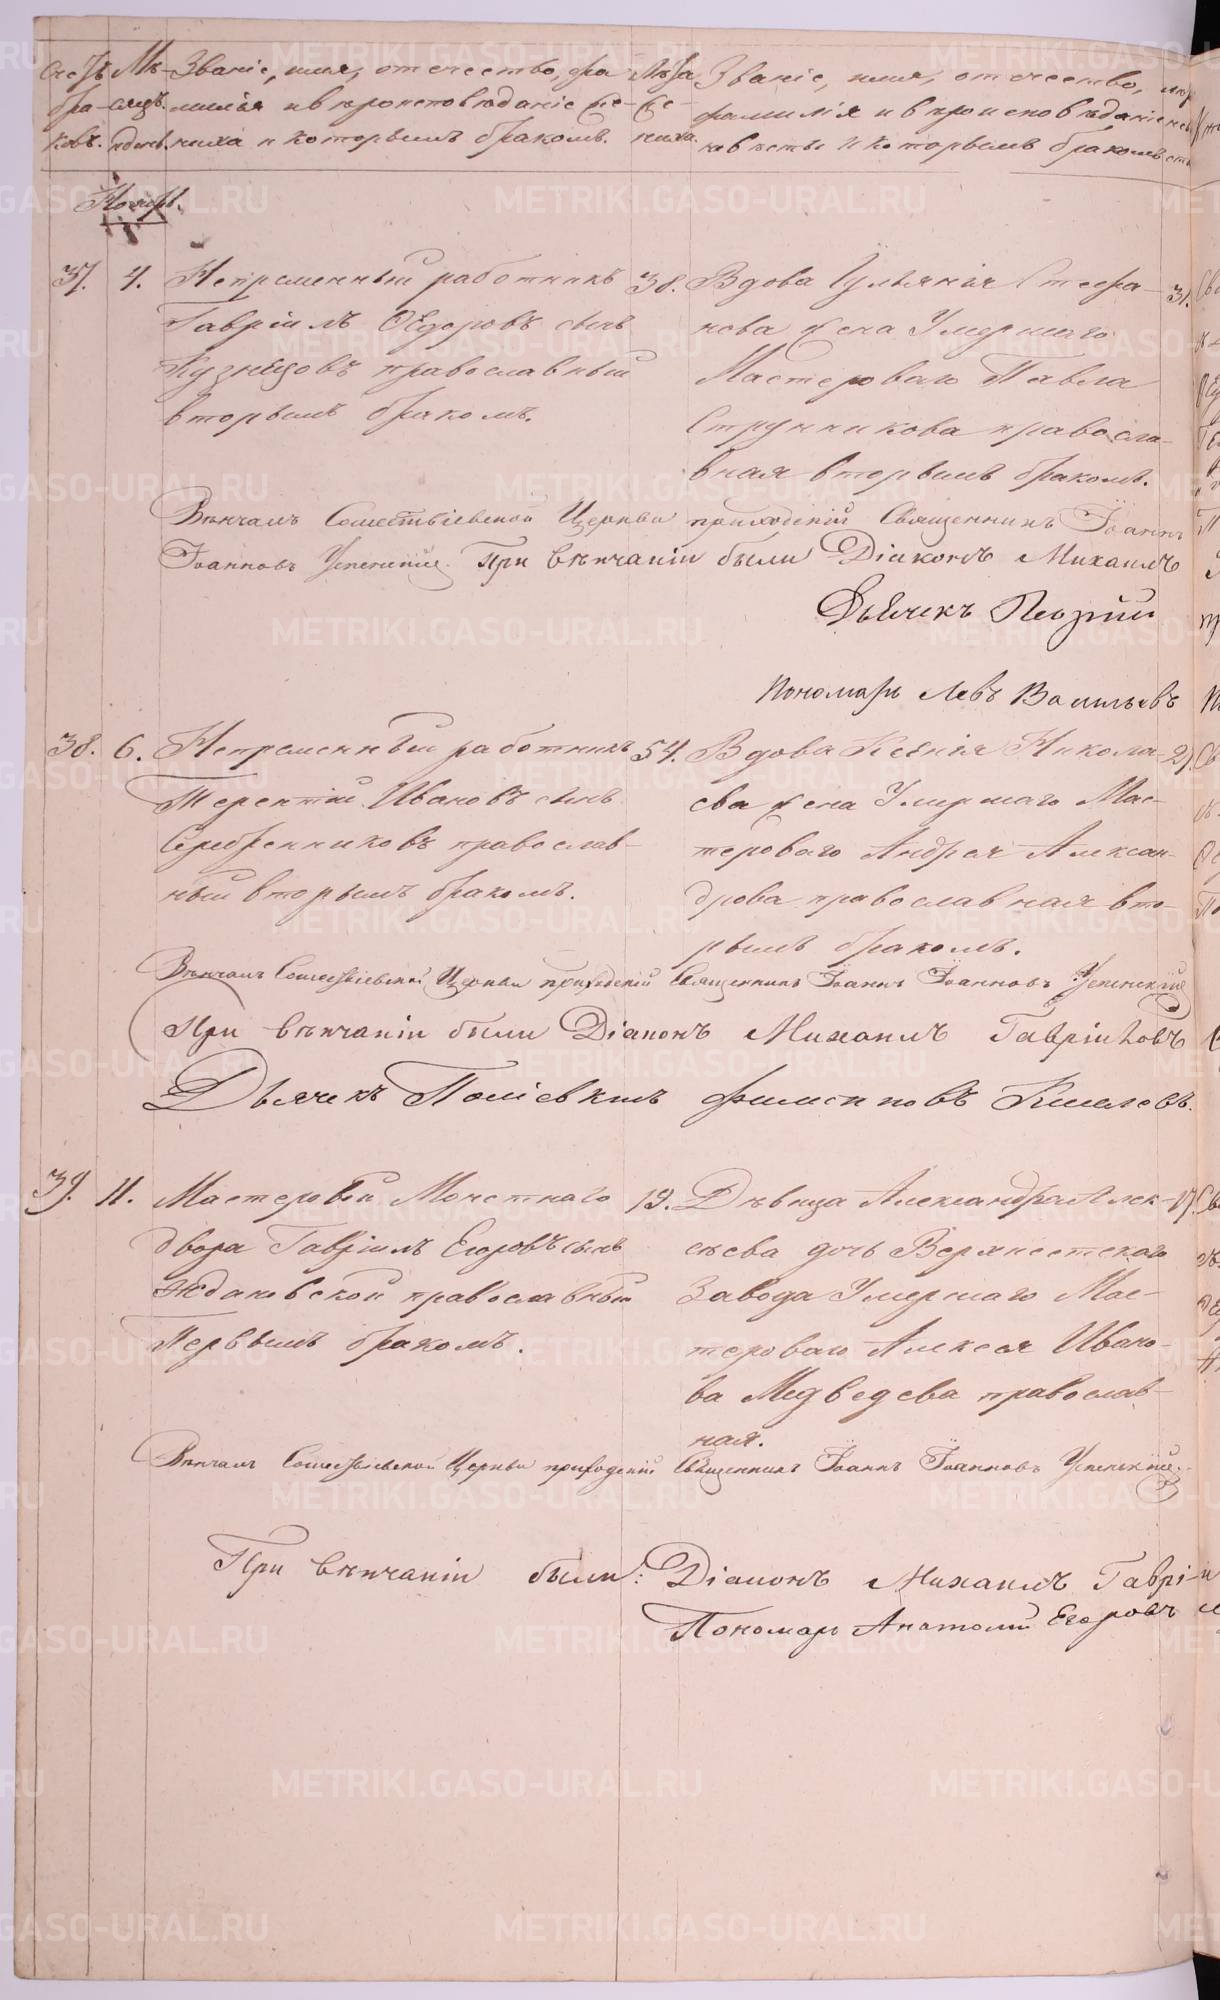 Счетъ бра-ковъ.
Мѣ-сяцъ и день.
Званіе, имя, отчество, фа-
милія и вѣроисповѣданіе же-
ниха и которымъ бракомъ.
Лѣта же-ниха.
Званіе, имя, отчество,
фамилія и вѣроисповѣданіе не-
вѣсты и которымъ бракомъ
Ноябрь.
37. 4. Непременный работникъ
Гавріилъ Ѳедоровъ сынъ
Кузнецовъ православный
вторымъ бракомъ.
38. Вдова Іульянія Стефа- 31.
нова жена Умершаго
Мастероваго Павла
Струнникова правосла-
вная вторымъ бракомъ.
Вѣнчалъ Сошественской Церкви приходскій Священникъ Іоаннъ
Іоанновъ Успенскій. При вѣнчаніи были Діаконъ Михаилъ
Дьячекъ
Пономарь Левъ Васильевъ
38. 6. Непременный работникъ
Терентій Ивановъ сынъ
Серебренниковъ православ-
ный вторымъ бракомъ.
54. Вдова Ксенія Никола- 27.
ева жена Умершаго Мас-
тероваго Андрея Алексан-
дрова православная вто-
рымъ бракомъ.
Вѣнчалъ Церкви приходскій Священникъ Іоаннъ Іоанновъ Успенскій
При вѣнчаніи были Діаконъ Михаилъ Гавріиловъ
Дьячекъ Поліевктъ Филипповъ
39. 11. Мастеровый Монетнаго
двора Гавріилъ Егоровъ сынъ
Ждановской православный
Первымъ бракомъ.
19. Дѣвица Александра Алек- 17.
сѣева дочь Верхнеетского
Завода Умершаго Мас-
тероваго Алексея Ивано-
ва Медведева православ-
ная.
Вѣнчалъ Церкви приходскій Священникъ Іоаннъ Іоанновъ Успенскій.
При вѣнчаніи были: Діаконъ Михаилъ Гаврі-
Пономарь Анатолій Егоровъ
METRIKI.GASO-URAL.RU